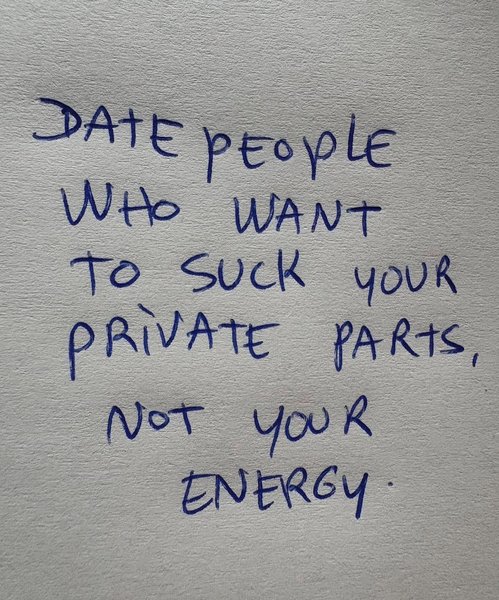 DATE PEOPLE
WHO WANT
TO SUCK YOUR
PRIVATE PARTS,
NOT YOUR
ENERGY.